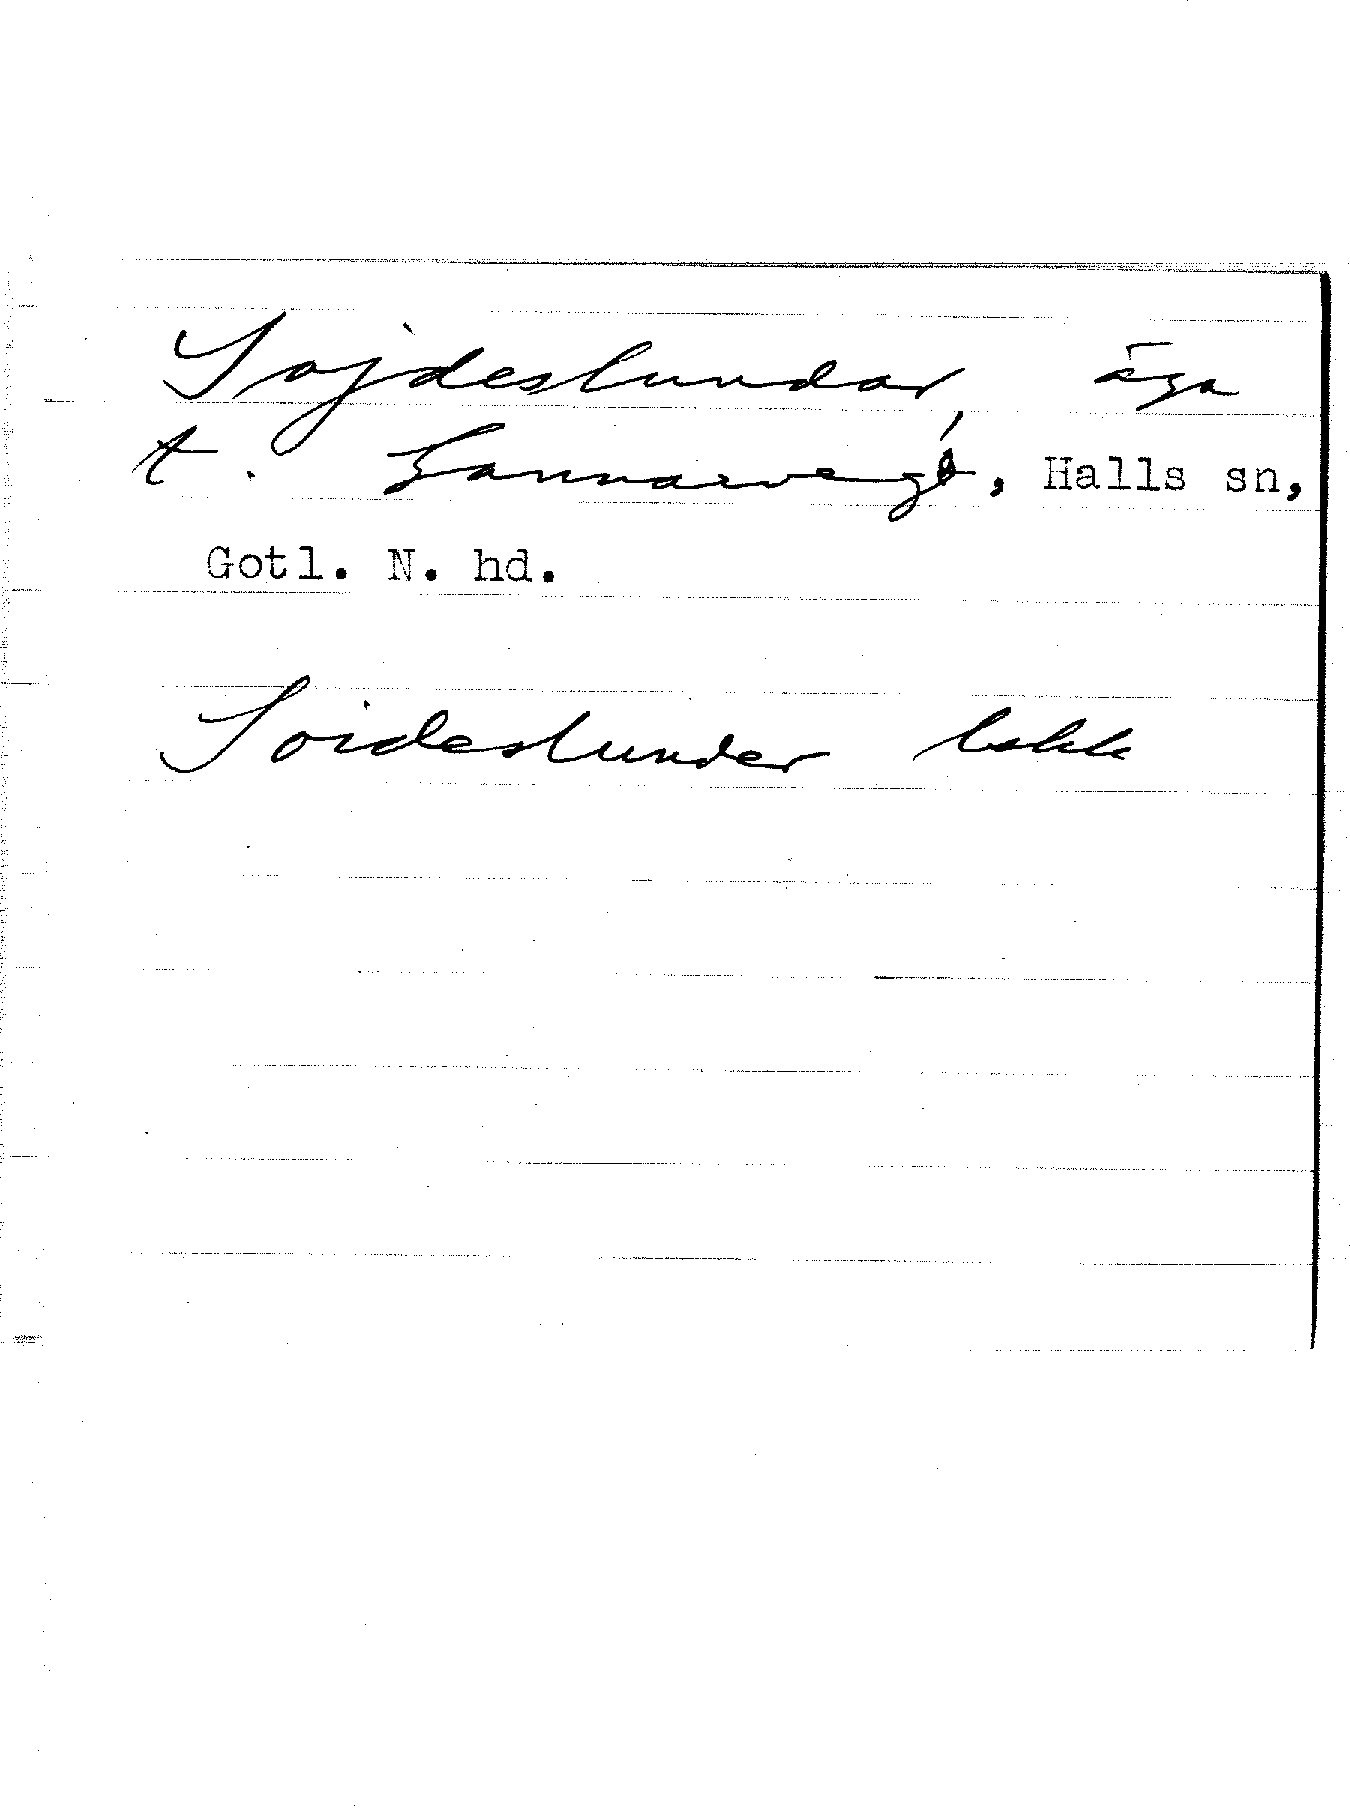 Sojdeslundar, äga
t. Gannarve g:d, Halls sn,
Gotl. N. hd.
Soideslunder